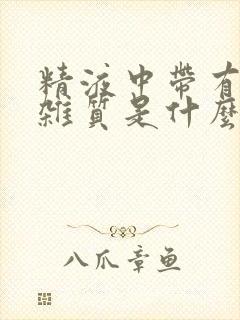 精液中帶有
雜質是什麼
八爪章鱼